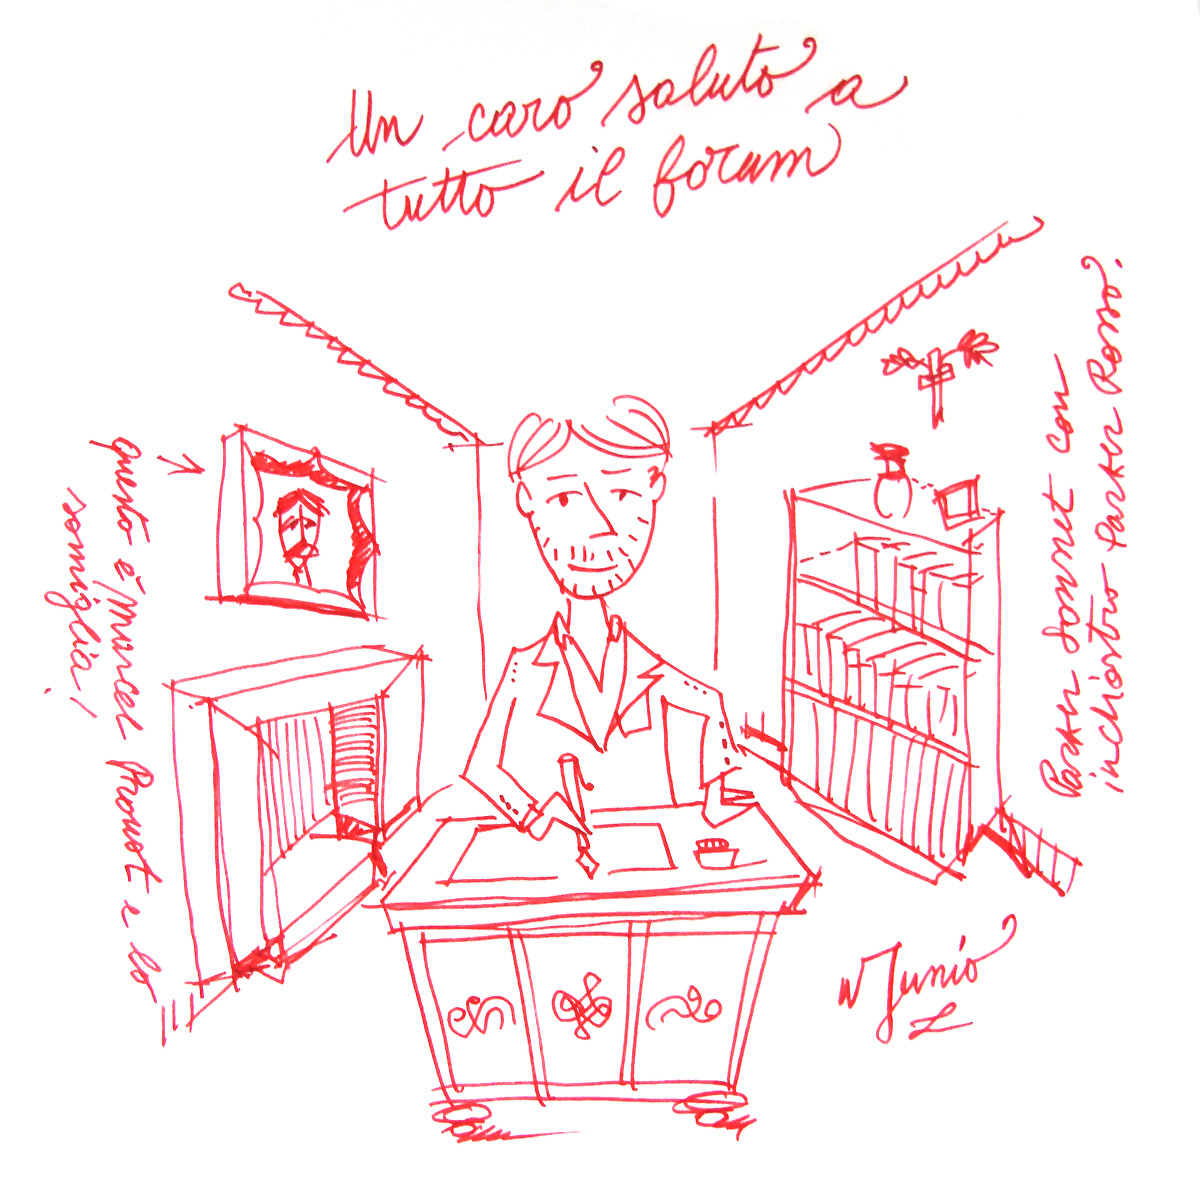 Un caro saluto a
tutto il forum
Questo è Marcel Proust e lo
somiglia!
Parker Sonnet con
inchiostro Parker Rosso.
W Junio